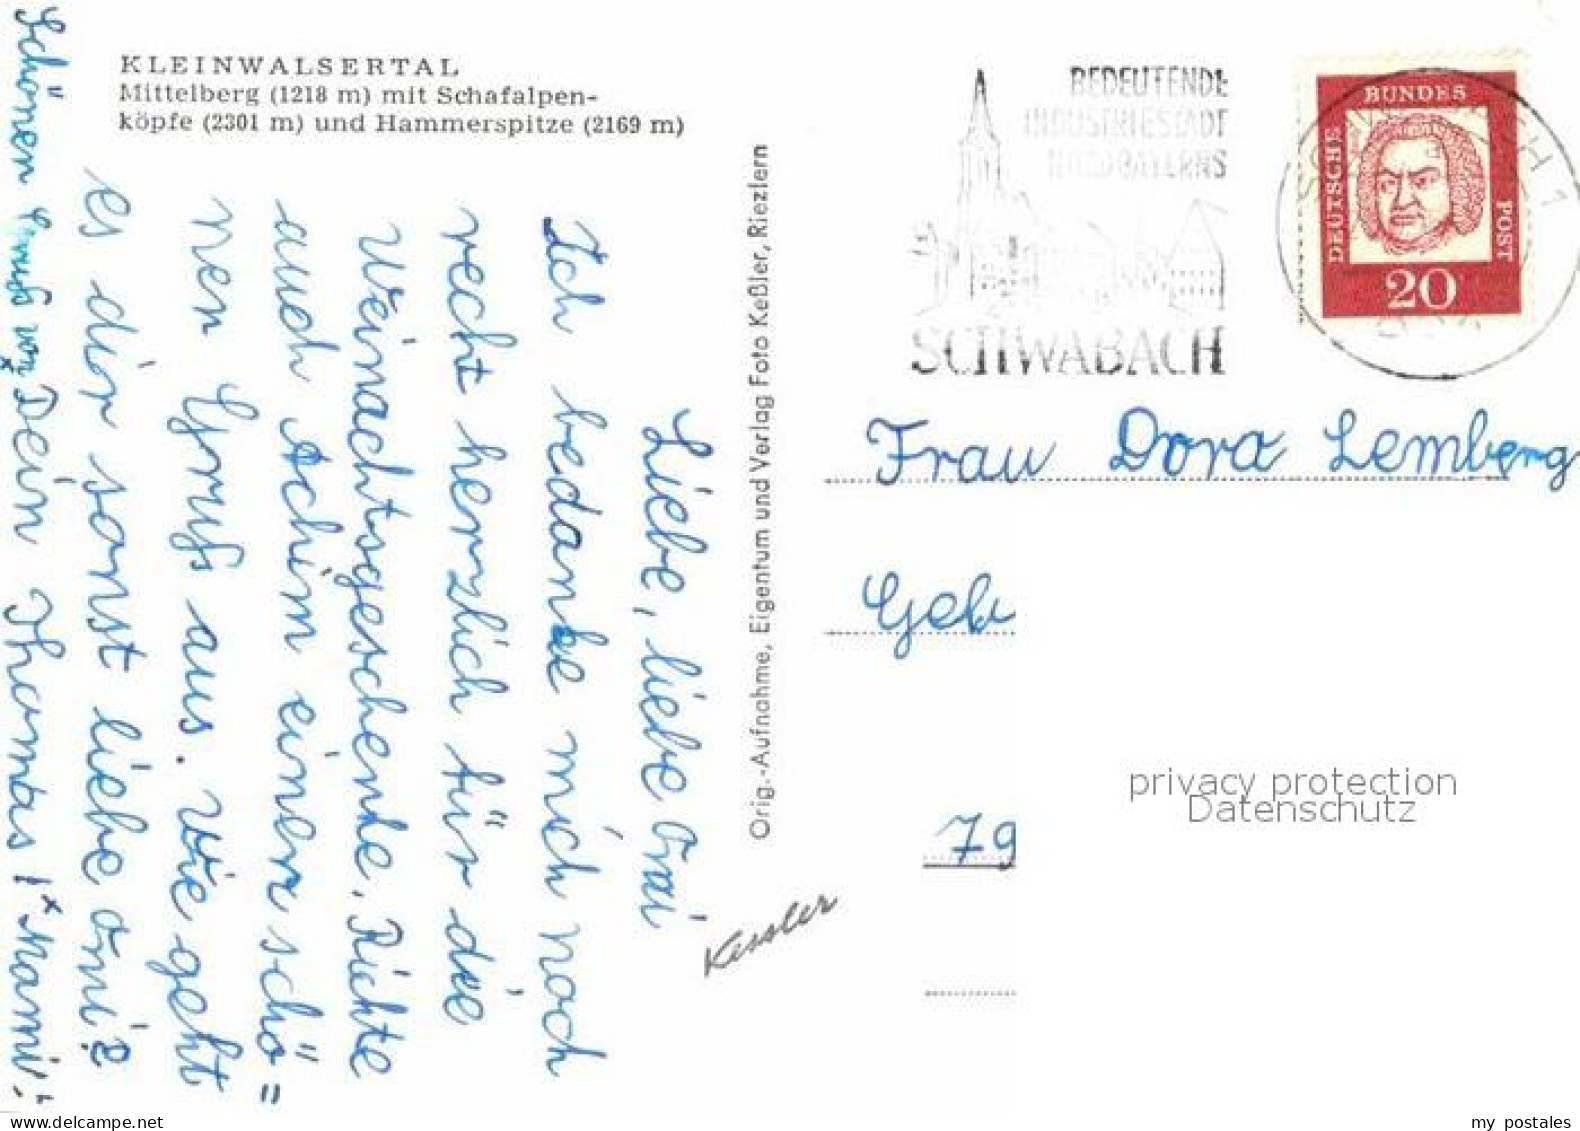 KLEINWALSERTAL
Mittelberg (1218 m) mit Schafalpen-
köpfe (2301 m) und Hammerspitze (2169 m)
Liebe, liebe Omi
Ich bedanke mich noch
recht herzlich für die
Weinachtsgeschenke. Richte
auch Achim einen schö=
nen Gruß aus. Wie geht
es dir sonst liebe Omi?
Dein Thomas!
Schönen Gruß von "Mami"
Orig.-Aufnahme, Eigentum und Verlag Foto Keßler, Riezlern
Kessler
BEDEUTENDE
INDUSTRIESTADT
NORDBAYERNS
SCHWABACH
DEUTSCHE
BUNDES
POST
20
Frau Dora Lemberg
Geb
79
privacy protection
Datenschutz
www.delcampe.net
my postales